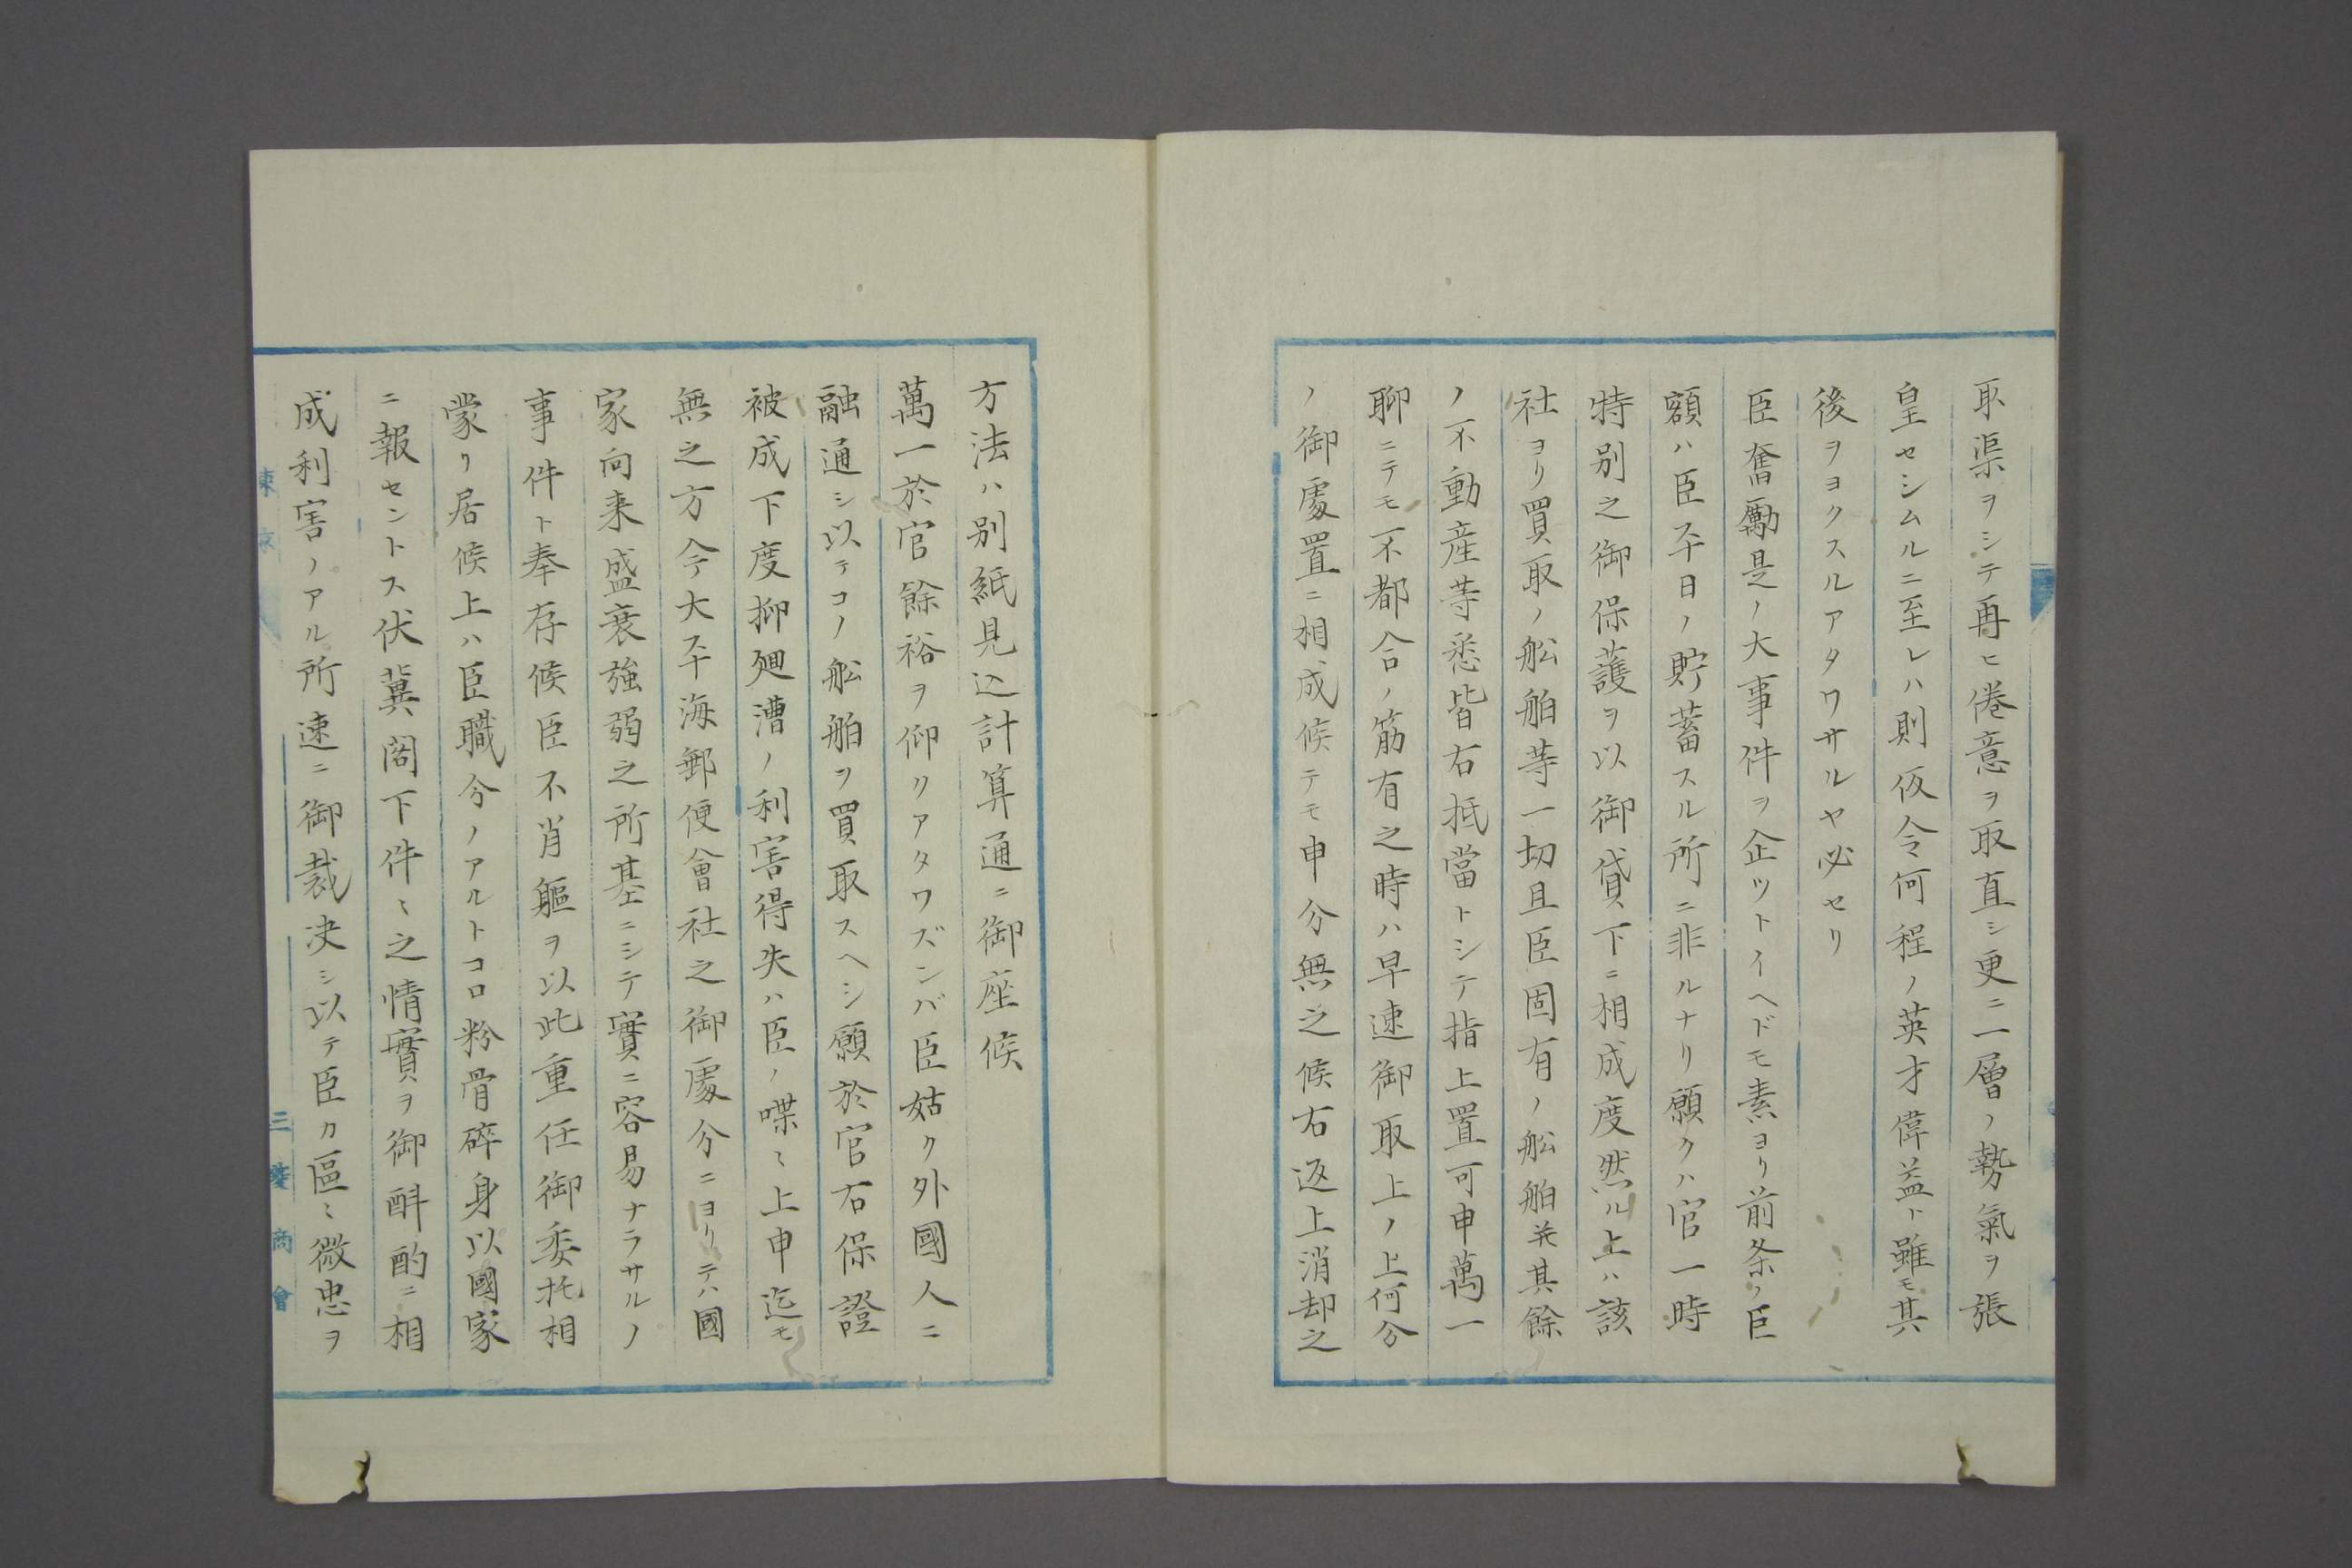 取渠ヲシテ再ヒ倦意ヲ取直シ更ニ一層ノ勢氣ヲ張
皇セシムルニ至レハ則仮令何程ノ英才偉益ト雖モ其
後ヲヨクスルアタワサルヤ必セリ
臣奮勵是ノ大事件ヲ企ツトイヘドモ素ヨリ前条ノ臣
額ハ臣平日ノ貯蓄スル所ニ非ルナリ願クハ官一時
特別之御保護ヲ以御貸下ニ相成度然ル上ハ該
社ヨリ買取ノ舩舶等一切且臣固有ノ舩舶并其餘
ノ不動産等悉皆右抵當トシテ指上置可申萬一
聊ニテモ不都合ノ筋有之時ハ早速御取上ノ上何分
ノ御處置ニ相成候テモ申分無之候右返上消却之
方法ハ別紙見込計算通ニ御座候
萬一於官餘裕ヲ仰リアタワズンバ臣姑ク外國人ニ
融通シ以テコノ舩舶ヲ買取スヘシ願於官右保證
被成下度抑廻漕ノ利害得失ハ臣ノ喋〻上申迄モ
無之方今大平海郵便會社之御處分ニヨリテハ國
家向来盛衰強弱之所基ニシテ實ニ容易ナラサルノ
事件ト奉存候臣不肖軀ヲ以此重任御委托相
蒙リ居候上ハ臣職今ノアルトコロ粉骨碎身以國家
ニ報セントス伏冀閤下件〻之情實ヲ御酙酌ニ相
成利害ノアル所速ニ御裁决シ以テ臣カ區〻微忠ヲ
東京
三菱商會